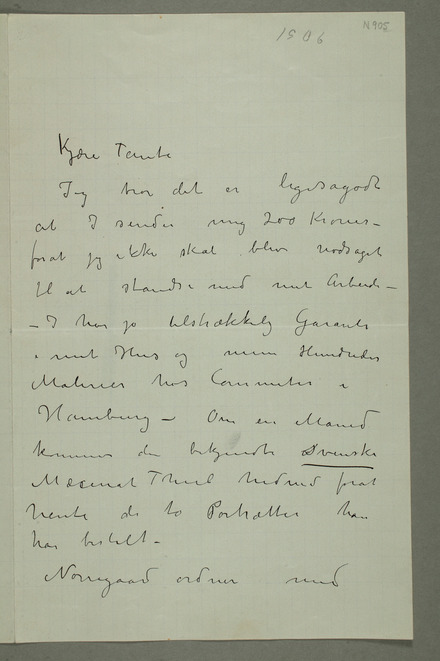 N 905
1906
Kjære Tante
Jeg tror det er ligesagodt
at I sender mig 200 Kroner –
forat jeg ikke skal blive nødsaget
til at standse med mit Arbeide –
– I har jo tilstrækkelig Garanti
i mit Hus og mine Hundreder
Malerier hos Commeter i
Hamburg – Om en Maaned
kommer den bekjendte Svenske
Mæcenat Thiel hid ned forat
hente de to Portrætter han
har bestilt –
Nørregaard ordner med